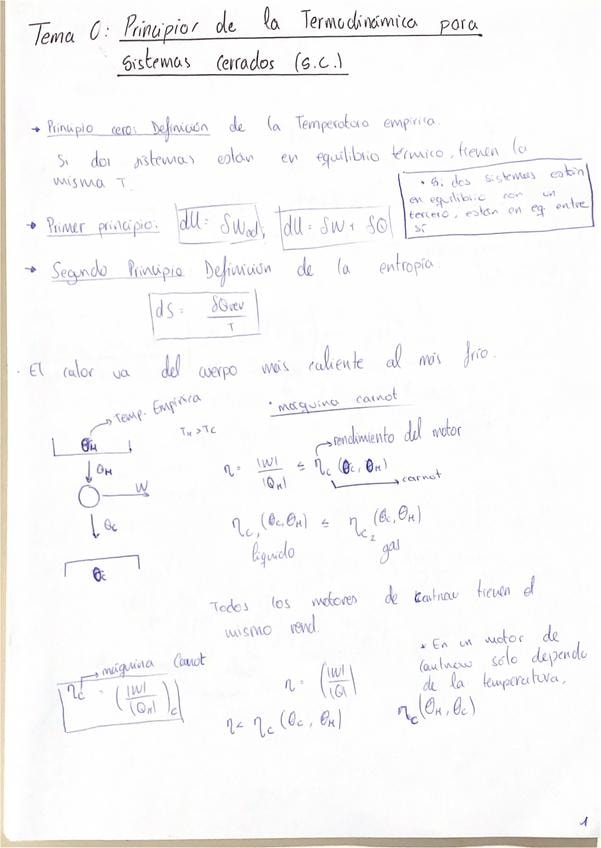 Tema 0: Principios de la Termodinámica para
sistemas cerrados (s.c.)
→ Principio cero: Definición de la Temperatura empírica.
Si dos sistemas están en equilibrio térmico, tienen la
misma T.
• Si dos sistemas están
en equilibrio con un
tercero, están en eq entre
sí
→ Primer principio: dU = δWad, dU = δW + δQ
→ Segundo Principio Definición de la entropía
dS = δQrev / T
· El calor va del cuerpo más caliente al más frío.
→ Temp. Empírica
TH > TC
θH
QH
W
QC
θC
· máquina carnot
→ rendimiento del motor
η = |W| / |QH| ≤ ηc (θc, θH)
→ carnot
ηc1 (θc, θH) ≤ ηc2 (θc, θH)
líquido gas
Todos los motores de tienen el
mismo rend.
→ máquina Carnot
ηc = (|W| / |QH|)c
η = (|W| / |Q|)
η < ηc (θc, θH)
* En un motor de
solo depende
de la temperatura.
ηc (θH, θc)
1